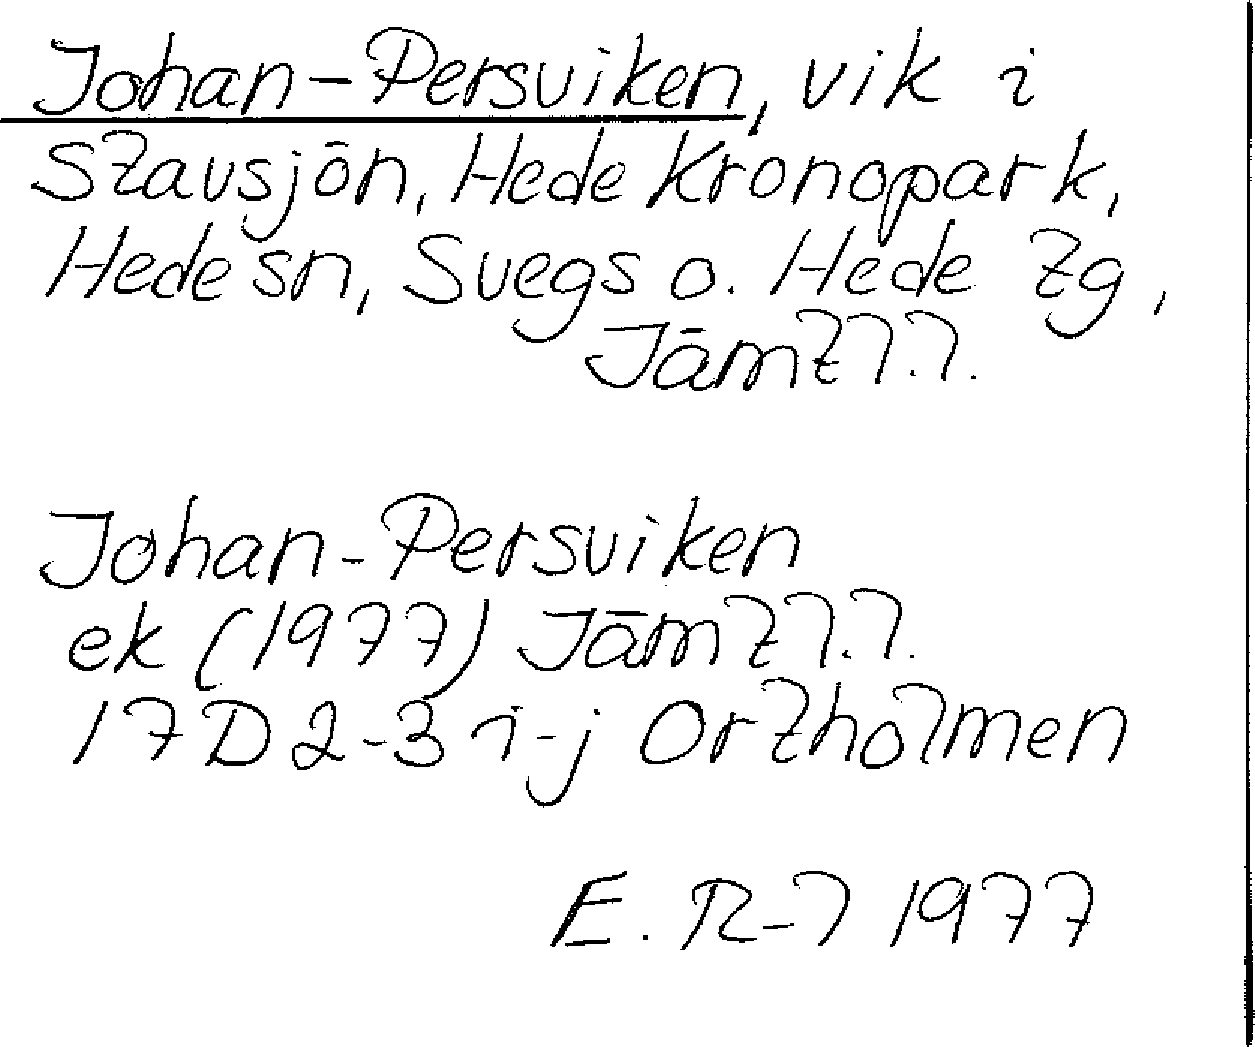 Johan-Persviken, vik i
Stavsjön, Hede kronopark,
Hede sn, Svegs o. Hede tg,
Jämtl.l.
Johan-Persviken
ek (1977) Jämtl.l.
17D 2-3 i-j Ortholmen
E. R-l 1977